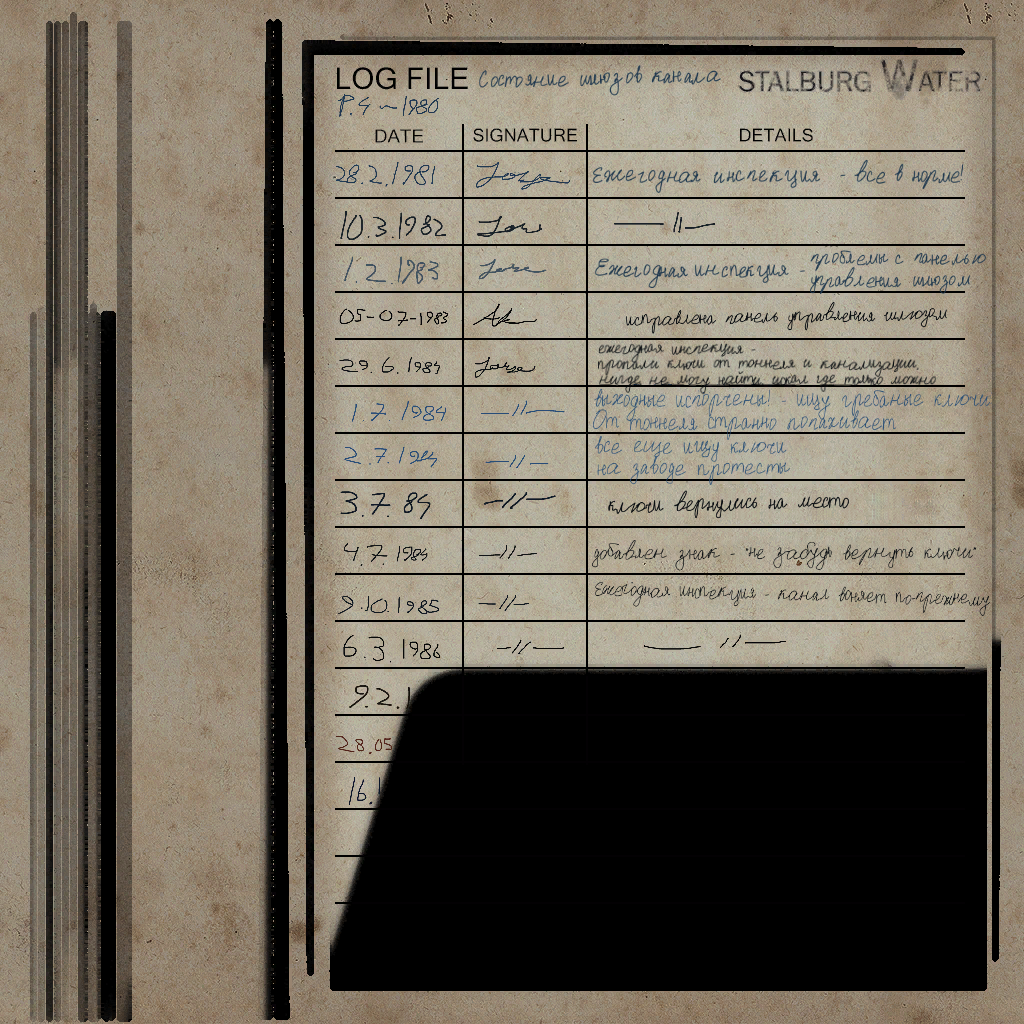 LOG FILE Состояние шлюзов канала STALBURG WATER
P.4 ~ 1980
DATE SIGNATURE DETAILS
28.2.1981 Ежегодная инспекция - все в норме!
10.3.1982 —//—
1.2.1983 Ежегодная инспекция - проблемы с панелью
управления шлюзом
05-07-1983 исправлена панель управления шлюзом
29.6.1984 ежегодная инспекция -
пропали ключи от тоннеля и канализации.
нигде не могу найти, искал где только можно
1.7 1984 —//— выходные испорчены! - ищу гребаные ключи
От тоннеля странно попахивает
2.7.1984 —//— все еще ищу ключи
на заводе протесты
3.7.84 —//— ключи вернулись на место
4.7.1984 —//— добавлен знак - "не забудь вернуть ключи"
9.10.1985 —//— Ежегодная инспекция - канал воняет по-прежнему
6.3 1986 —//— —//—
9.2.1
28.05
16.1